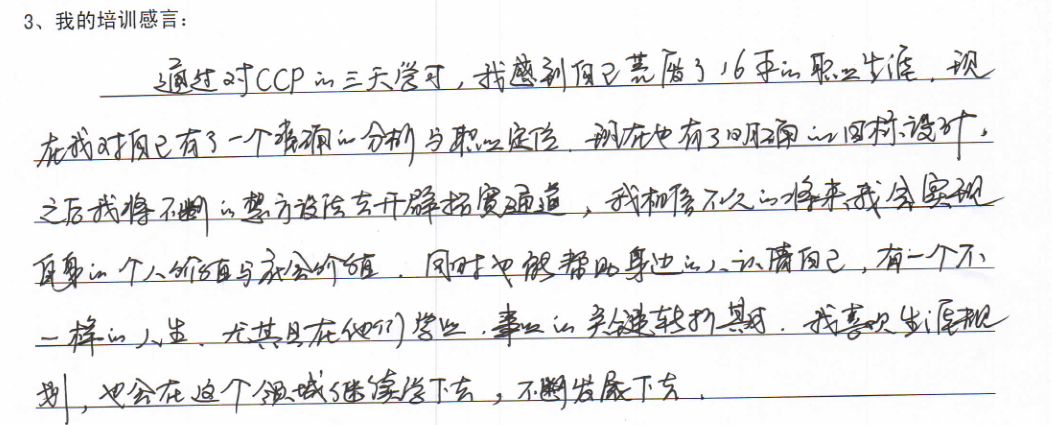 3、我的培训感言:
通过对CCP的三天学习,我感到自己荒废了16年的职业生涯.现
在我对自己有了一个准确的分析与职业定位.现在也有了明确的目标设计,
之后我将不断的想方设法去开辟拓宽通道,我相信不久的将来我会实现
自身的个人价值与社会价值.同时也能帮助身边的人认清自己,有一个不
一样的人生、尤其是在他们学业.事业的关键转折期.我喜欢生涯规
划,也会在这个领域继续学下去,不断发展下去.